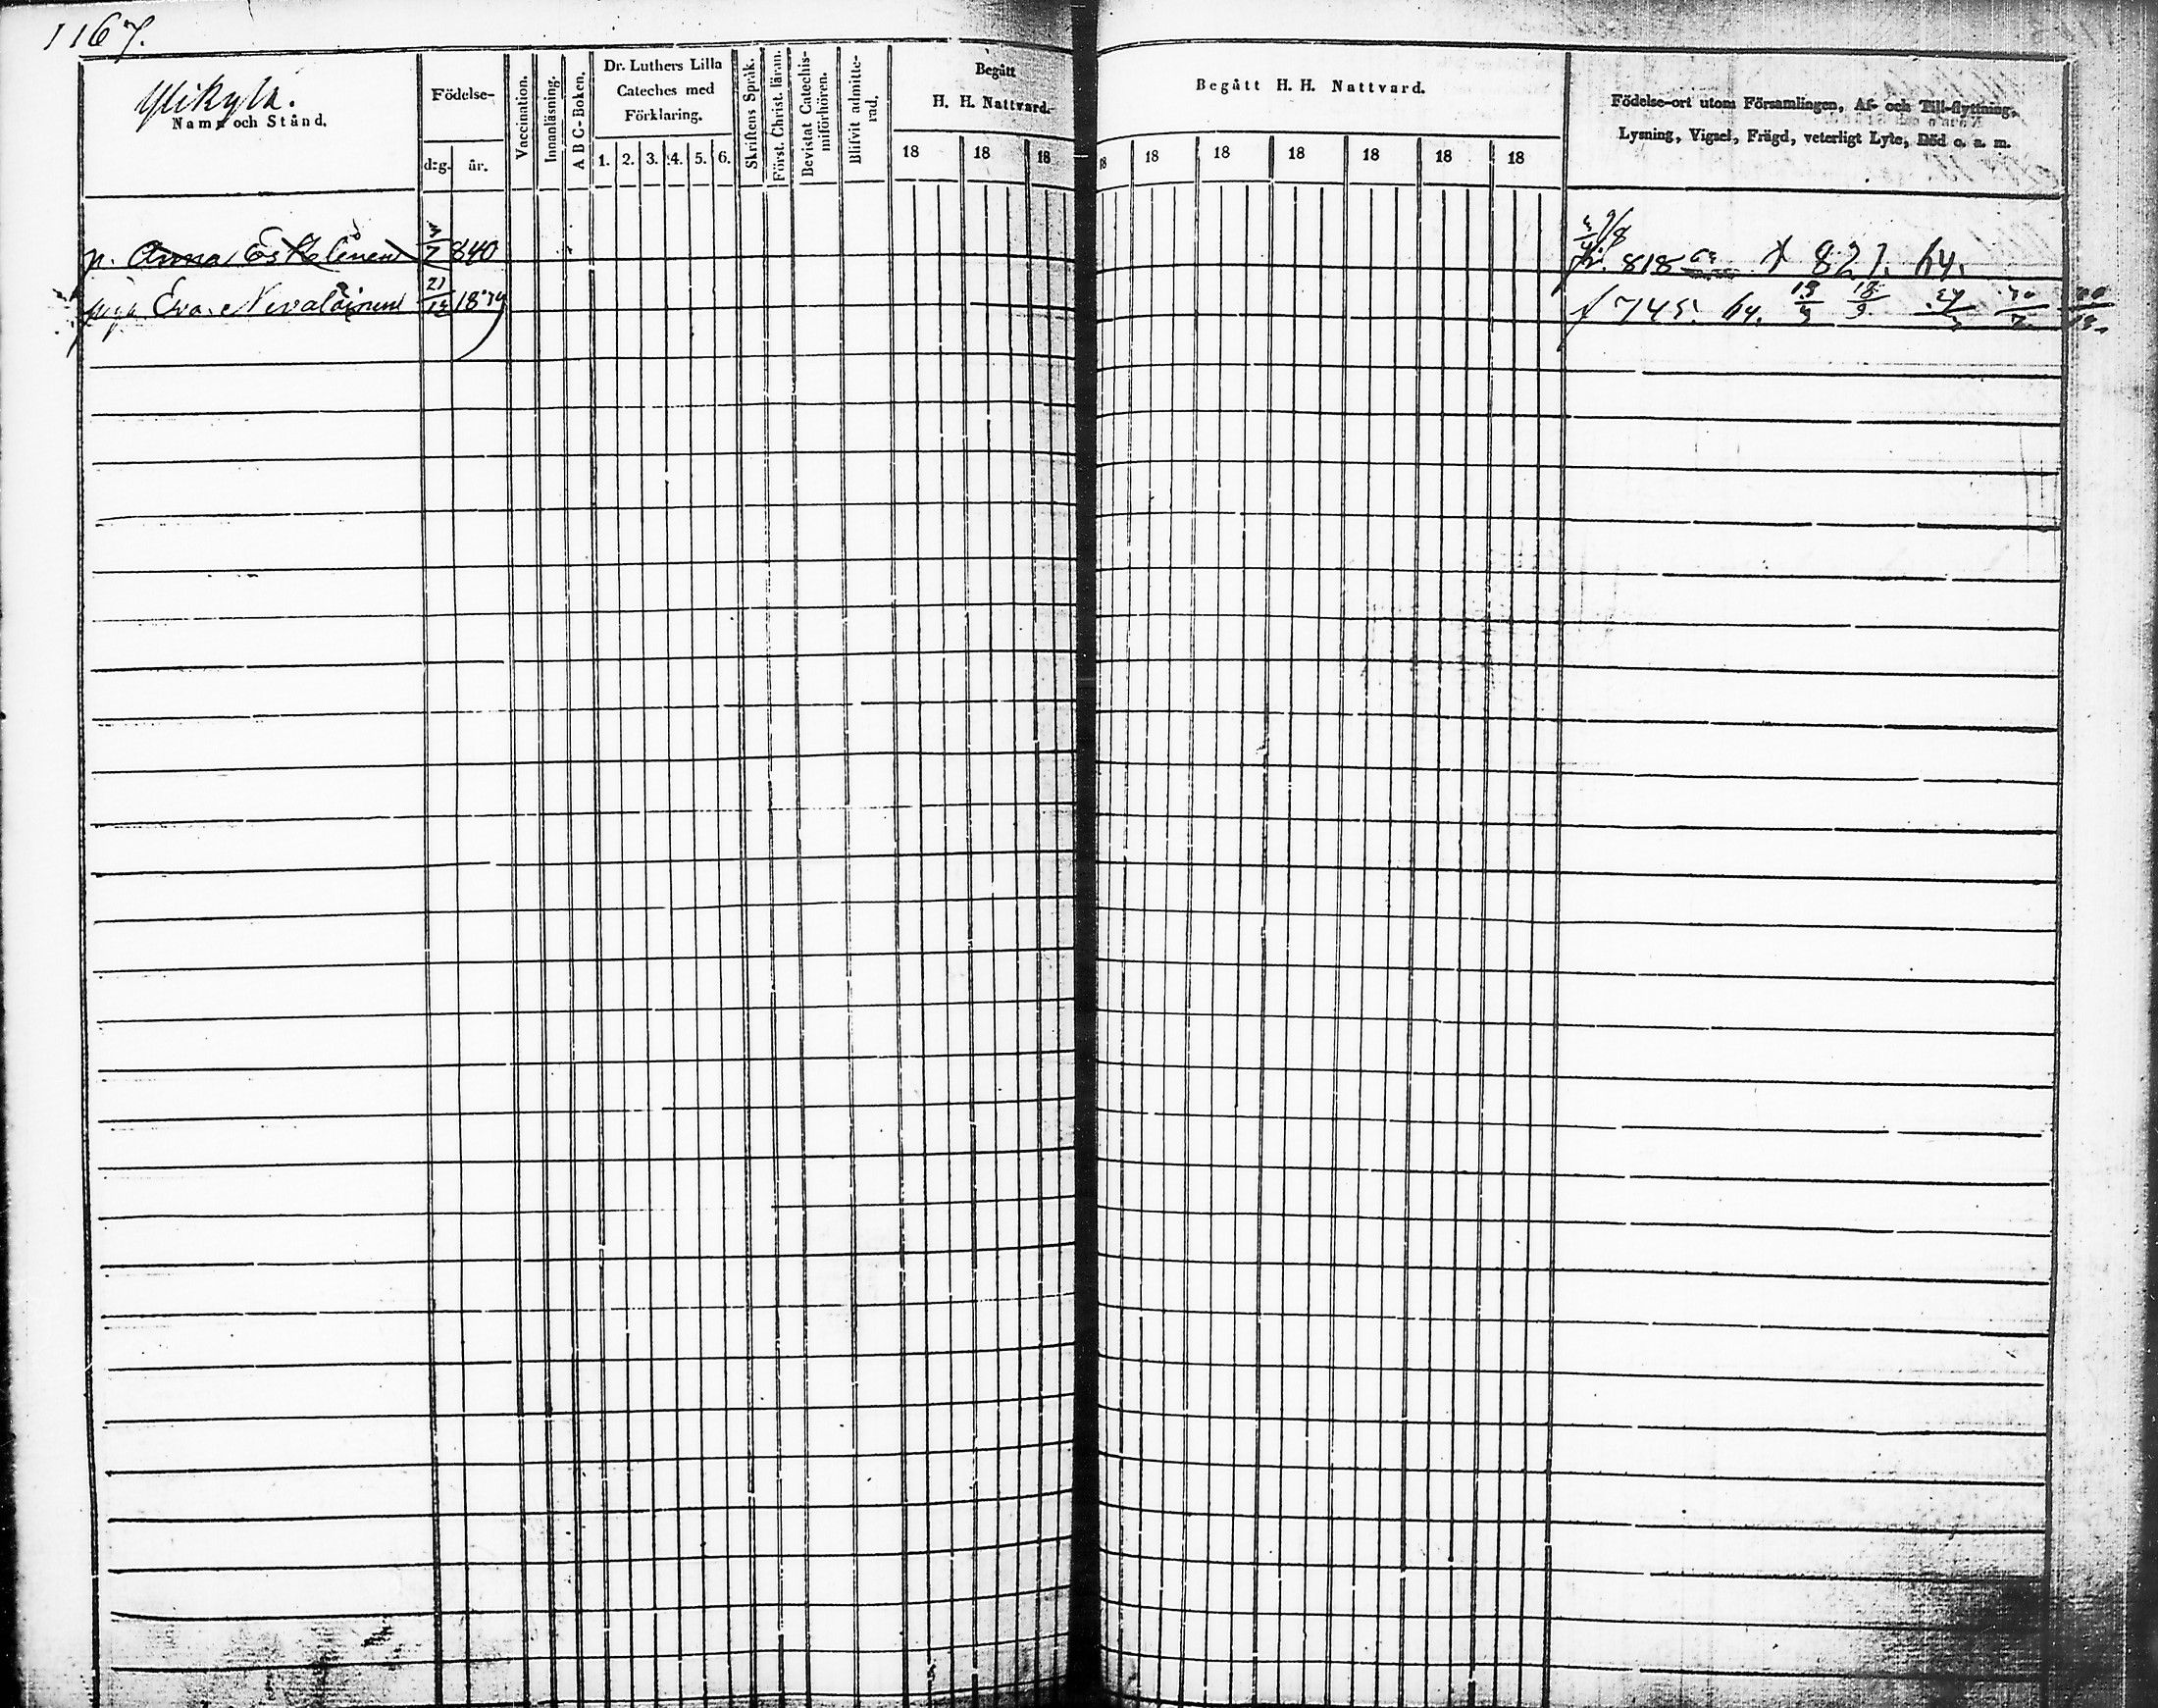 1167.
Ylikylä.
Namn och Stånd.
Födelse-
dag.
år.
Vaccination.
Innanläsning.
A B C-Boken.
Dr. Luthers Lilla
Cateches med
Förklaring.
1. 2. 3. 4. 5. 6.
Skriftens Språk.
Först. Christ. läran.
Bevistat Catechis-
miförhören.
Blifvit admitte-
rad.
Begått
H. H. Nattvard.
18 18 18
Begått H. H. Nattvard.
18 18 18 18 18 18 18
Födelse-ort utom Församlingen, Af- och Till-flyttning,
Lysning, Vigsel, Frägd, veterligt Lyte, Död o. s. m.
p. Anna Eskelinen 7 840
818 827. 64.
piga Eva Nevalainen 21/12 18
745. 64.